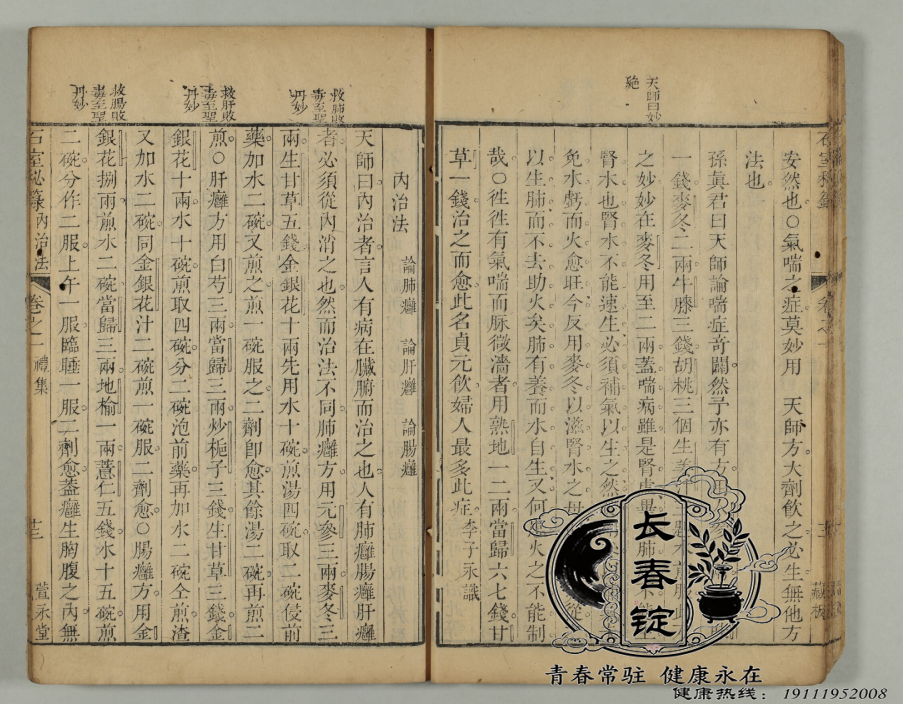 天師曰妙
絶
安然也○氣喘之症莫妙用 天師方大劑飲之必生無他方
法也
孫真君曰天師論喘症奇闢然予亦有方
一錢麥冬二兩牛膝三錢胡桃三個生
之妙妙在麥冬用至二兩蓋喘病雖是腎虛
腎水也腎水不能速生必須補氣以生之然
免水虧而火愈旺今反用麥冬以滋腎水之母
以生肺而不去助火矣肺有養而水自生又何 火之不能制
哉○徃徃有氣喘而脉微濇者用熟地一二兩當歸六七錢甘
草一錢治之而愈此名貞元飲婦人最多此症 李子永識
救肺敗
毒至聖
丹妙
救肝敗
毒至聖
丹妙
救腸敗
毒至聖
丹妙
內治法 論肺癰 論肝癰 論腸癰
天師曰內治者言人有病在臟腑而治之也人有肺癰腸癰肝癰
者必須從內消之也然而治法不同肺癰方用元參三兩麥冬三
兩生甘草五錢金銀花十兩先用水十碗煎湯四碗取二碗侵前
藥加水二碗又煎之煎一碗服之二劑卽愈其餘湯二碗再煎二
煎○肝癰方用白芍三兩當歸三兩炒梔子三錢生甘草三錢金
銀花十兩水十碗煎取四碗分二碗泡前藥再加水二碗仝煎渣
又加水二碗同金銀花汁二碗煎一碗服二劑愈○腸癰方用金
銀花捌兩煎水二碗當歸三兩地榆一兩薏仁五錢水十五碗煎
二碗分作二服上午一服臨睡一服二劑愈蓋癰生胸腹之內無
石室秘籙 內治法 卷之一 禮集 十三 萱永堂
长春锭
青春常驻 健康永在
健康热线： 19111952008